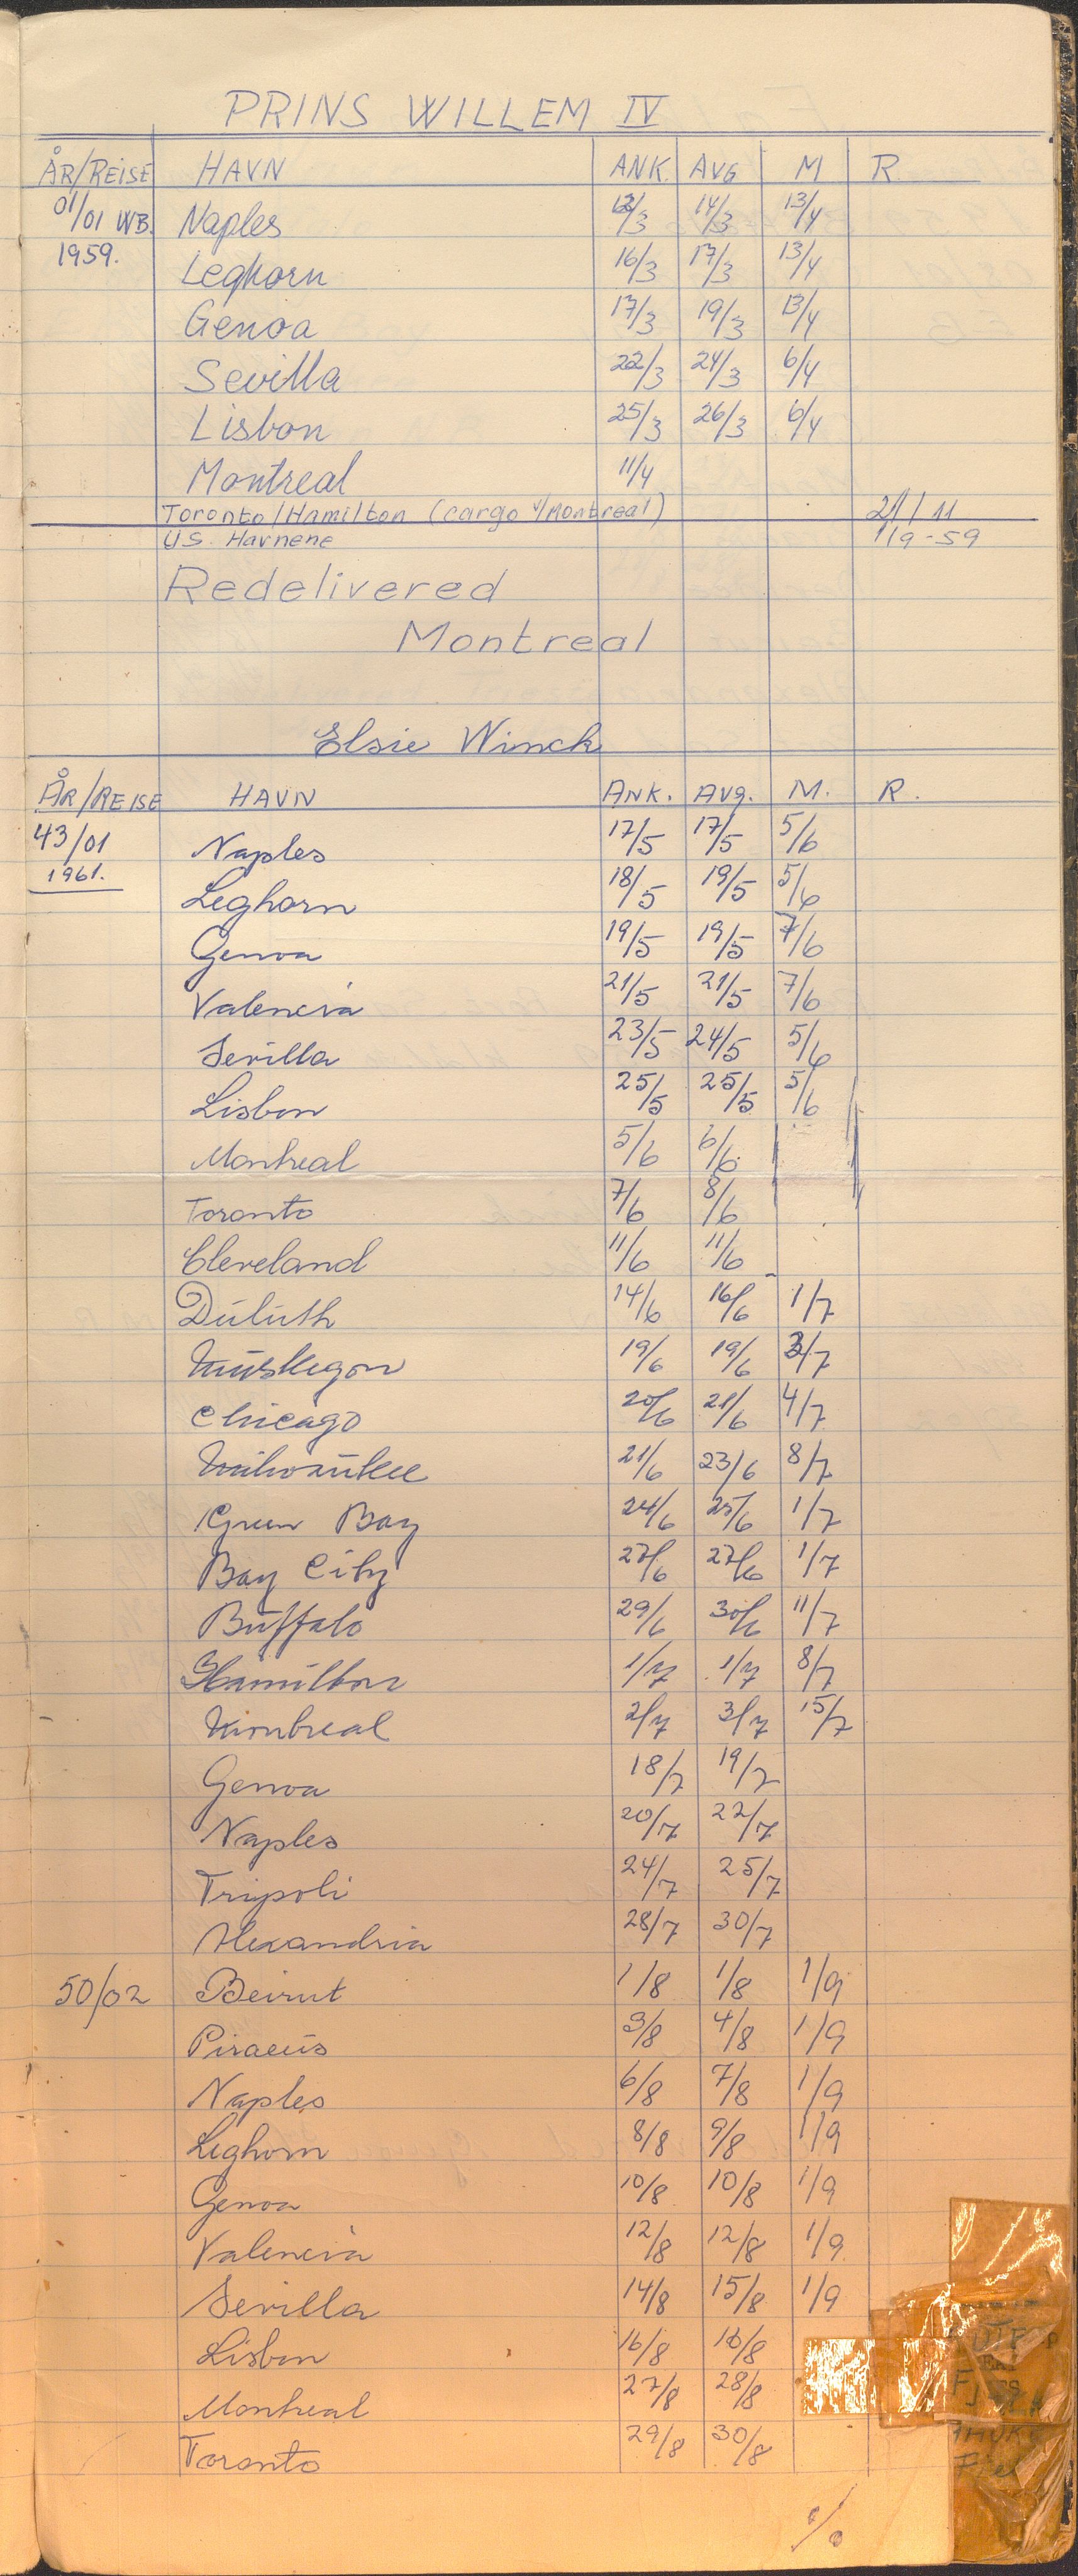 PRINS WILLEM IV
ÅR/REISE HAVN ANK. AVG M R.
01/01 WB. Naples 12/3 14/3 13/4
1959. Leghorn 16/3 17/3 13/4
Genoa 17/3 19/3 13/4
Sevilla 22/3 24/3 6/4
Lisbon 25/3 26/3 6/4
Montreal 11/4
Toronto/Hamilton (cargo v/Montreal) 21/11
U.S. Havnene 1/9-59
Redelivered
Montreal
Elsie Winck
ÅR/REISE HAVN ANK. AVG. M. R.
43/01 Naples 17/5 17/5 5/6
1961. Leghorn 18/5 19/5 5/6
Genoa 19/5 19/5 7/6
Valencia 21/5 21/5 7/6
Sevilla 23/5 24/5 5/6
Lisbon 25/5 25/5 5/6
Montreal 5/6 6/6
Toronto 7/6 8/6
Cleveland 11/6 11/6
Duluth 14/6 16/6 1/7
Muskegon 19/6 19/6 3/7
Chicago 20/6 21/6 4/7
Milwaukee 21/6 23/6 8/7
Green Bay 24/6 25/6 1/7
Bay City 27/6 27/6 1/7
Buffalo 29/6 30/6 11/7
Hamilton 1/7 1/7 8/7
Montreal 2/7 3/7 15/7
Genoa 18/7 19/7
Naples 20/7 22/7
Tripoli 24/7 25/7
Alexandria 28/7 30/7
50/02 Beirut 1/8 1/8 1/9
Piraeus 3/8 4/8 1/9
Naples 6/8 7/8 1/9
Leghorn 8/8 9/8 1/9
Genoa 10/8 10/8 1/9
Valencia 12/8 12/8 1/9
Sevilla 14/8 15/8 1/9
Lisbon 16/8 16/8
Montreal 27/8 28/8
Toronto 29/8 30/8